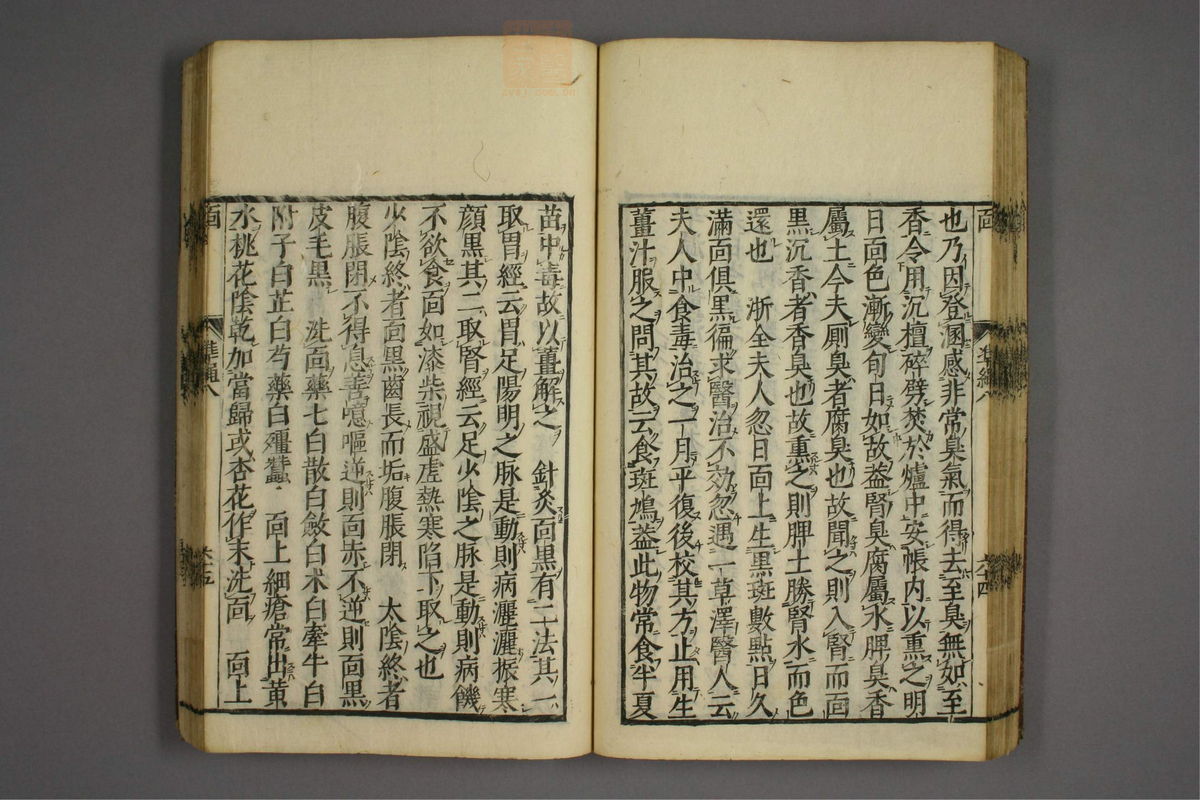 也乃因登溷感非常臭氣而得去至臭無如至
香令用沉檀碎劈焚於爐中安帳内以熏之明
日面色漸變旬日如故葢腎臭腐屬水脾臭香
屬土今夫厠臭者腐臭也故聞之則入腎而面
黒沉香者香臭也故熏之則脾土勝腎水而色
還也　浙全夫人忽日面上生黒斑數點日久
滿面俱黒徧求醫治不効忽遇一草澤醫人云
夫人中食毒治之一月平復後校其方止用生
薑汁服之問其故云食斑鳩葢此物常食半夏
苗中毒故以薑解之　針灸面黒有二法其一
取胃經云胃足陽明之脉是動則病灑灑振寒
顔黒其二取腎經云足少陰之脉是動則病饑
不欲食面如漆柴視盛虚熱寒陷下取之也
少陰終者面黒齒長而垢腹脹閉　太陰終者
腹脹閉不得息善噫嘔逆則面赤不逆則面黒
皮毛黒　洗面藥七白散白斂白术白牽牛白
附子白芷白芍藥白殭蠶　面上細瘡常出黄
水桃花陰乾加當歸或杏花作末洗面　面上
面
準繩八
六十四
面
準繩八
六十五